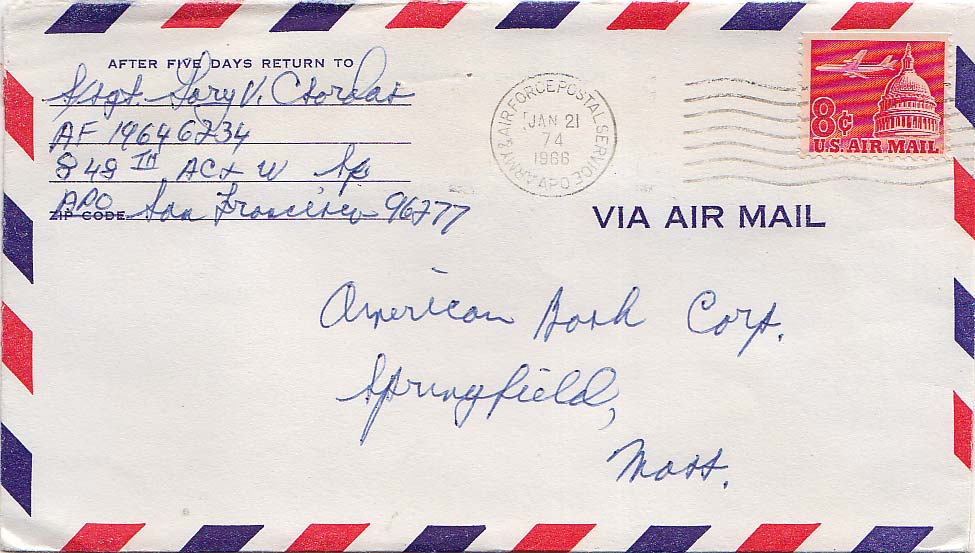 AFTER FIVE DAYS RETURN TO
S/Sgt. Gary V. Csordas
AF 19646234
848 TH AC & W Sq
APO San Francisco 96277
ZIP CODE
ARMY & AIR FORCE POSTAL SERVICE
JAN 21
74
1966
APO
8¢
U.S. AIR MAIL
VIA AIR MAIL
American Book Corp.
Springfield,
Mass.